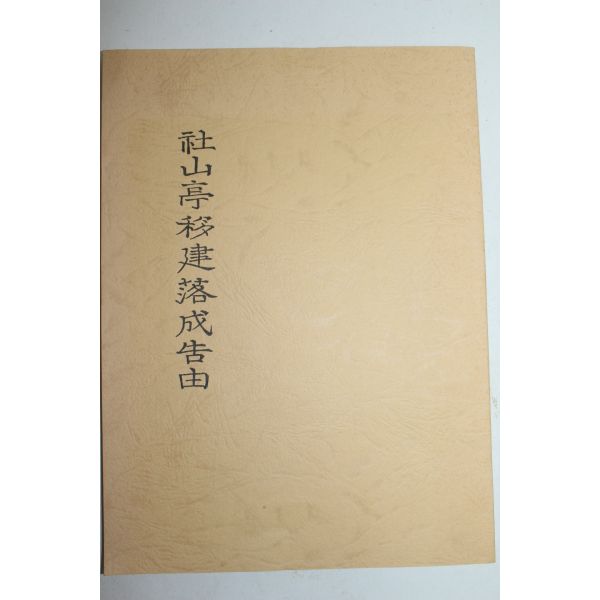 社山亭移建落成告由